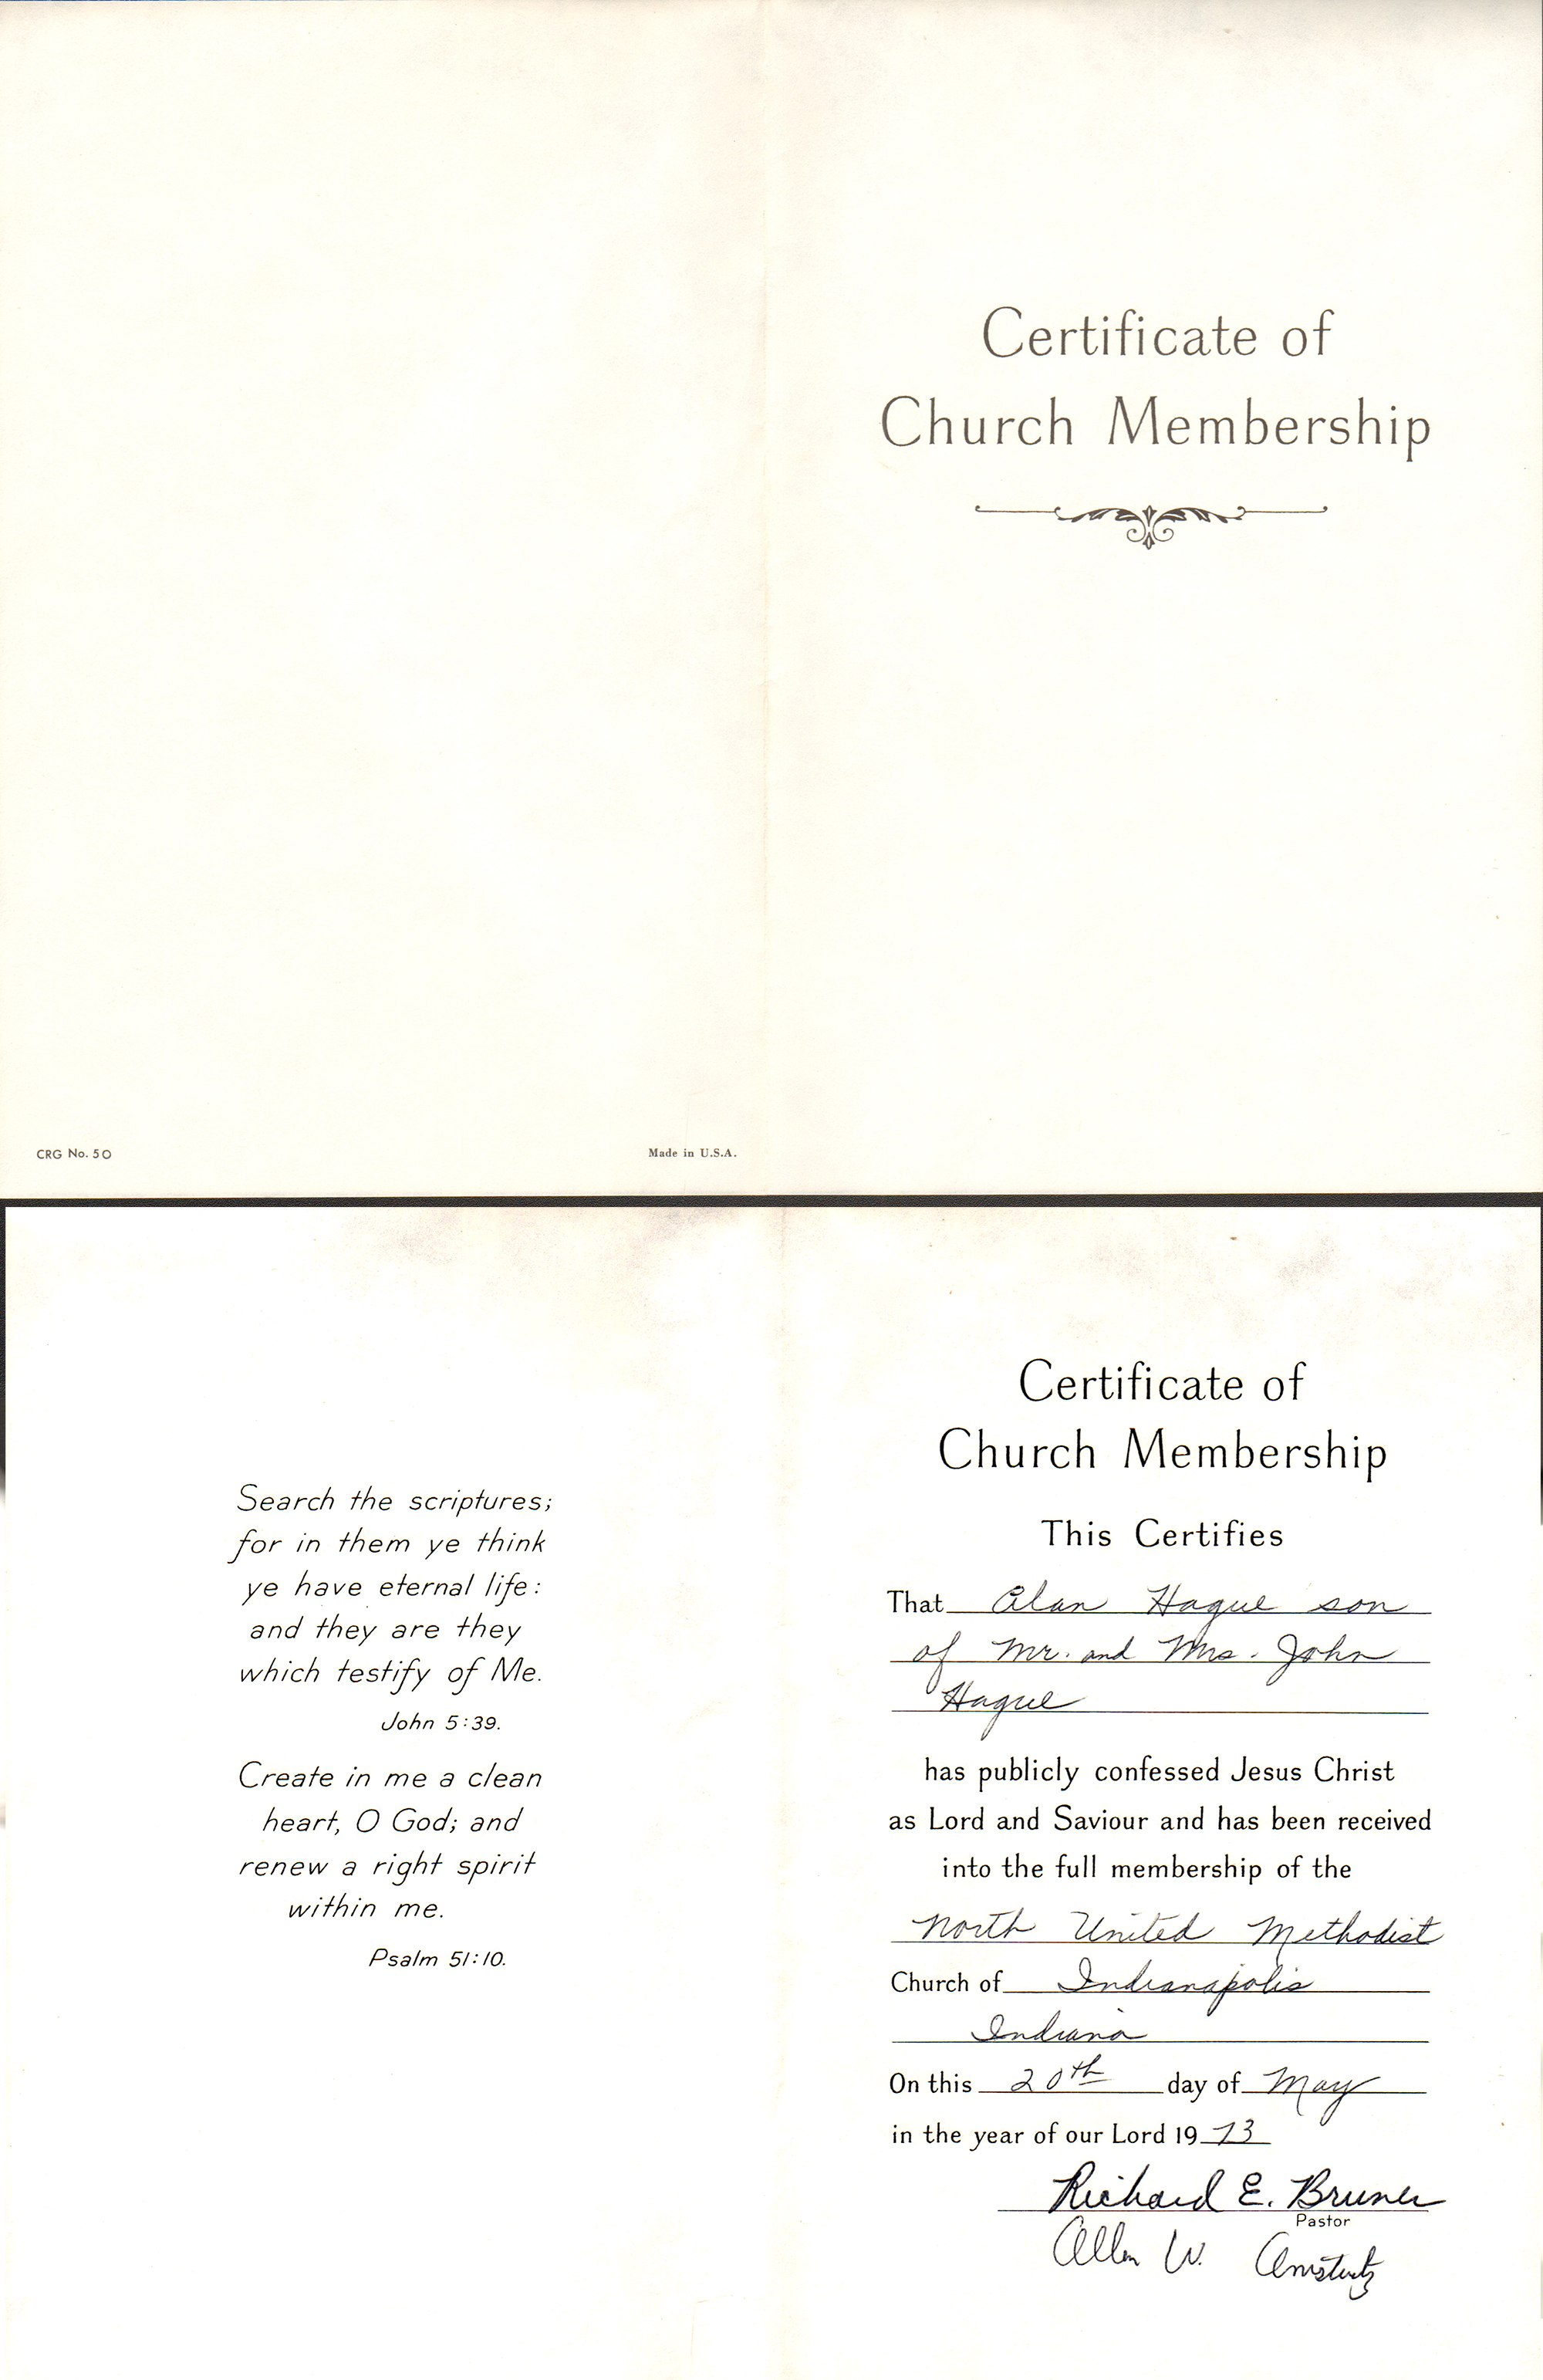 Certificate of
Church Membership
CRG No. 50
Made in U.S.A.
Search the scriptures;
for in them ye think
ye have eternal life:
and they are they
which testify of Me.
John 5:39.
Create in me a clean
heart, O God; and
renew a right spirit
within me.
Psalm 51:10.
Certificate of
Church Membership
This Certifies
That Alan Hague son
of Mr. and Mrs. John
Hague
has publicly confessed Jesus Christ
as Lord and Saviour and has been received
into the full membership of the
North United Methodist
Church of Indianapolis
Indiana
On this 20th day of May
in the year of our Lord 1973
Richard E. Bruner
Pastor
Allen W. Amstutz